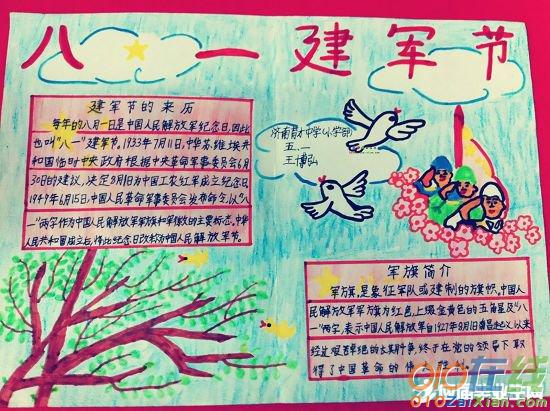 八一建军节
建军节的来历
每年的八月一日是中国人民解放军纪念日,因此
也叫“八一”建军节。1933年7月11日,中华苏维埃共
和国临时中央政府根据中央革命军事委员会6月
30日的建议,决定8月1日为中国工农红军成立纪念日。
1949年6月15日,中国人民革命军事委员会发布命令,以“八
一”两字作为中国人民解放军军旗和军徽的主要标志。中华
人民共和国成立后,将此纪念日改称为中国人民解放军建军节。
济南育才中学(小学部)
五、一
王博弘
军旗简介
军旗,是象征军队或建制的旗帜,中国人
民解放军军旗为红色,上缀金黄色的五角星及“八
一”两字,表示中国人民解放军自1927年8月1日南昌起义以来
经过艰苦卓绝的
斗争,终于在党的领导下取
得了中国革命的伟大
910在线
910ZaiXian.com